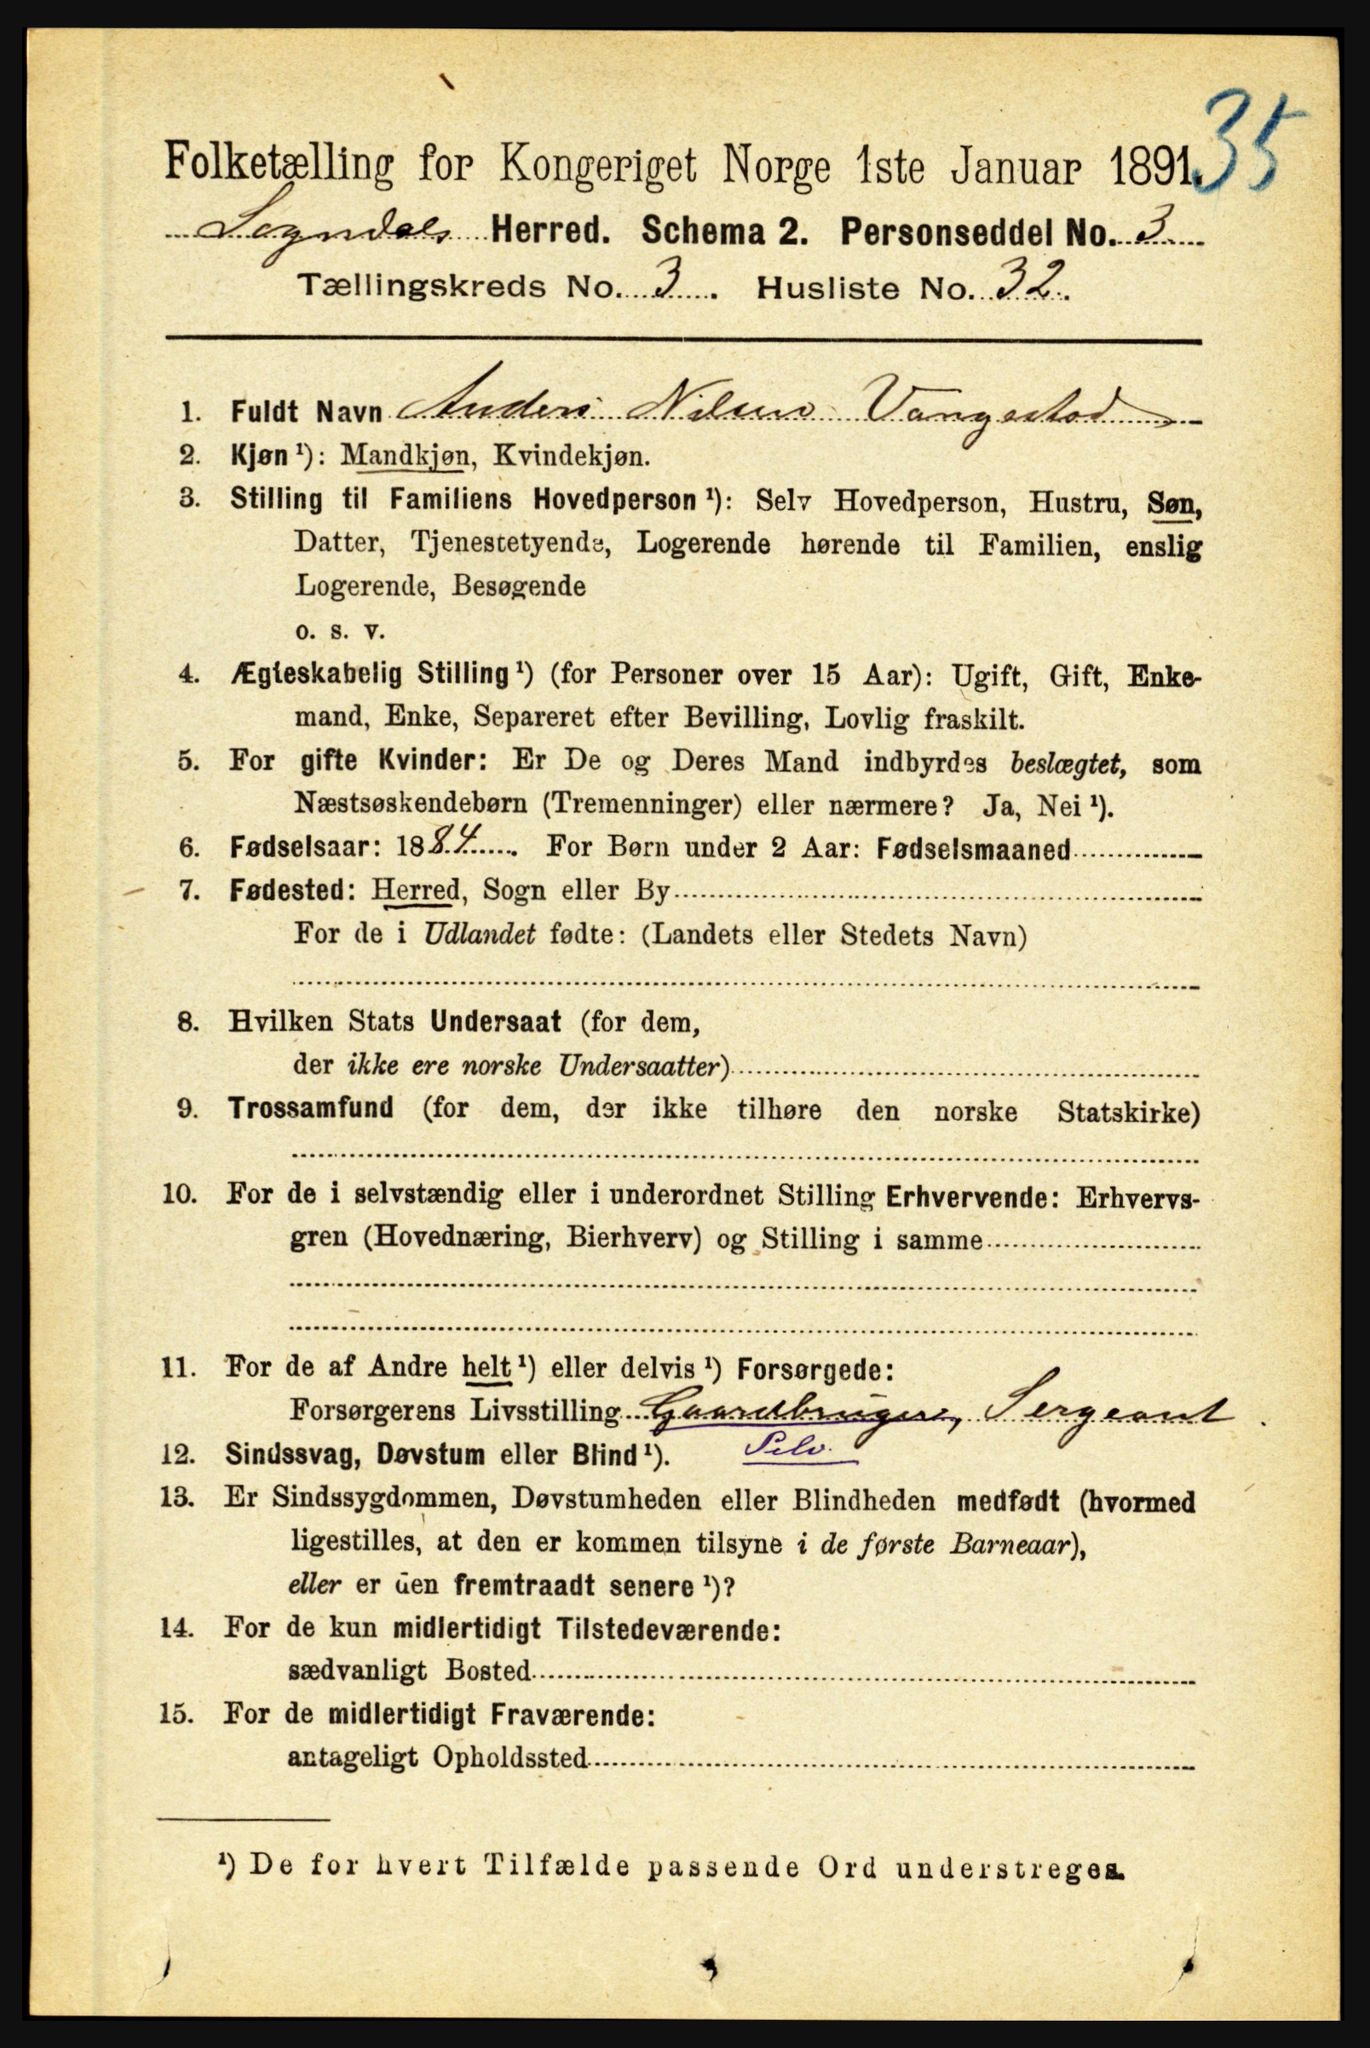 35
Folketælling for Kongeriget Norge 1ste Januar 1891.
Sogndals Herred. Schema 2. Personseddel No. 3
Tællingskreds No. 3. Husliste No. 32.
1. Fuldt Navn Anders Nilsen Vangestad
2. Kjøn ¹): Mandkjøn, Kvindekjøn.
3. Stilling til Familiens Hovedperson ¹): Selv Hovedperson, Hustru, Søn,
Datter, Tjenestetyende, Logerende hørende til Familien, enslig
Logerende, Besøgende
o. s. v.
4. Ægteskabelig Stilling ¹) (for Personer over 15 Aar): Ugift, Gift, Enke-
mand, Enke, Separeret efter Bevilling, Lovlig fraskilt.
5. For gifte Kvinder: Er De og Deres Mand indbyrdes beslægtet, som
Næstsøskendebørn (Tremenninger) eller nærmere? Ja, Nei ¹).
6. Fødselsaar: 1884. For Børn under 2 Aar: Fødselsmaaned
7. Fødested: Herred, Sogn eller By
For de i Udlandet fødte: (Landets eller Stedets Navn)
8. Hvilken Stats Undersaat (for dem,
der ikke ere norske Undersaatter)
9. Trossamfund (for dem, der ikke tilhøre den norske Statskirke)
10. For de i selvstændig eller i underordnet Stilling Erhvervende: Erhvervs-
gren (Hovednæring, Bierhverv) og Stilling i samme
11. For de af Andre helt ¹) eller delvis ¹) Forsørgede:
Forsørgerens Livsstilling Gaardbruger, Sergeant.
12. Sindssvag, Døvstum eller Blind ¹). Selv.
13. Er Sindssygdommen, Døvstumheden eller Blindheden medfødt (hvormed
ligestilles, at den er kommen tilsyne i de første Barneaar),
eller er den fremtraadt senere ¹)?
14. For de kun midlertidigt Tilstedeværende:
sædvanligt Bosted
15. For de midlertidigt Fraværende:
antageligt Opholdssted
¹) De for hvert Tilfælde passende Ord understreges.